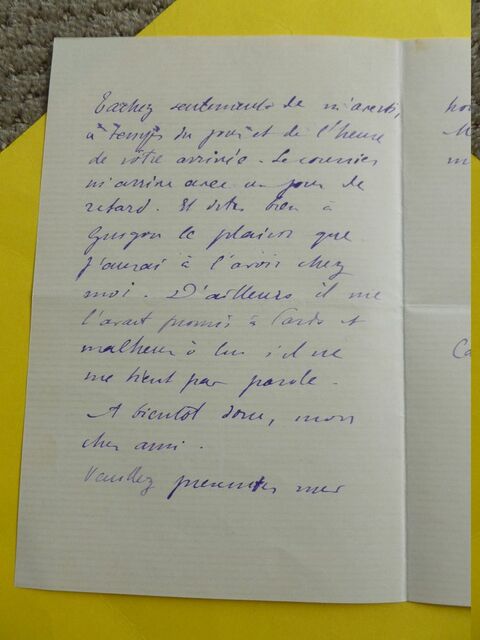 Tachez seulement de m'avertir
à temps du jour et de l'heure
de votre arrivée. Le courrier
m'arrive avec un jour de
retard. Et dites bien à
le plaisir que
j'aurai à l'avoir chez
moi. D'ailleurs il me
l'avait promis à Paris et
malheur à lui s'il ne
me tient pas parole.
A bientôt donc, mon
cher ami.
Veuillez présenter mes